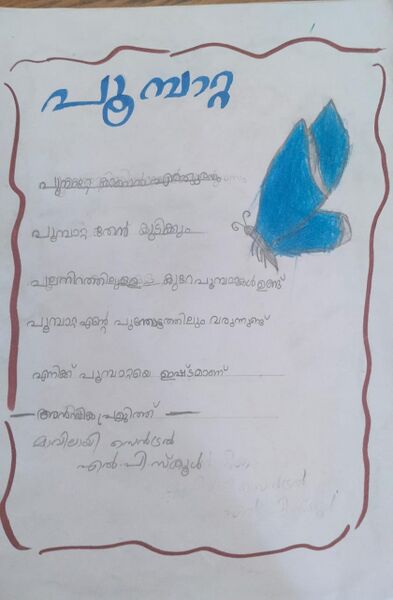 പൂമ്പാറ്റ
പൂമ്പാറ്റ കാണാൻ എന്തുരസം
പൂമ്പാറ്റ തേൻ കുടിക്കും
പലനിറത്തിലുള്ള കുറേ പൂമ്പാറ്റകൾ ഉണ്ട്
പൂമ്പാറ്റ എന്റെ പൂന്തോട്ടത്തിലും വരുന്നുണ്ട്
എനിക്ക് പൂമ്പാറ്റയെ ഇഷ്ടമാണ്
പ്രജിത്ത്
മാവിലായി സെൻട്രൽ
എൽ.പി സ്കൂൾ